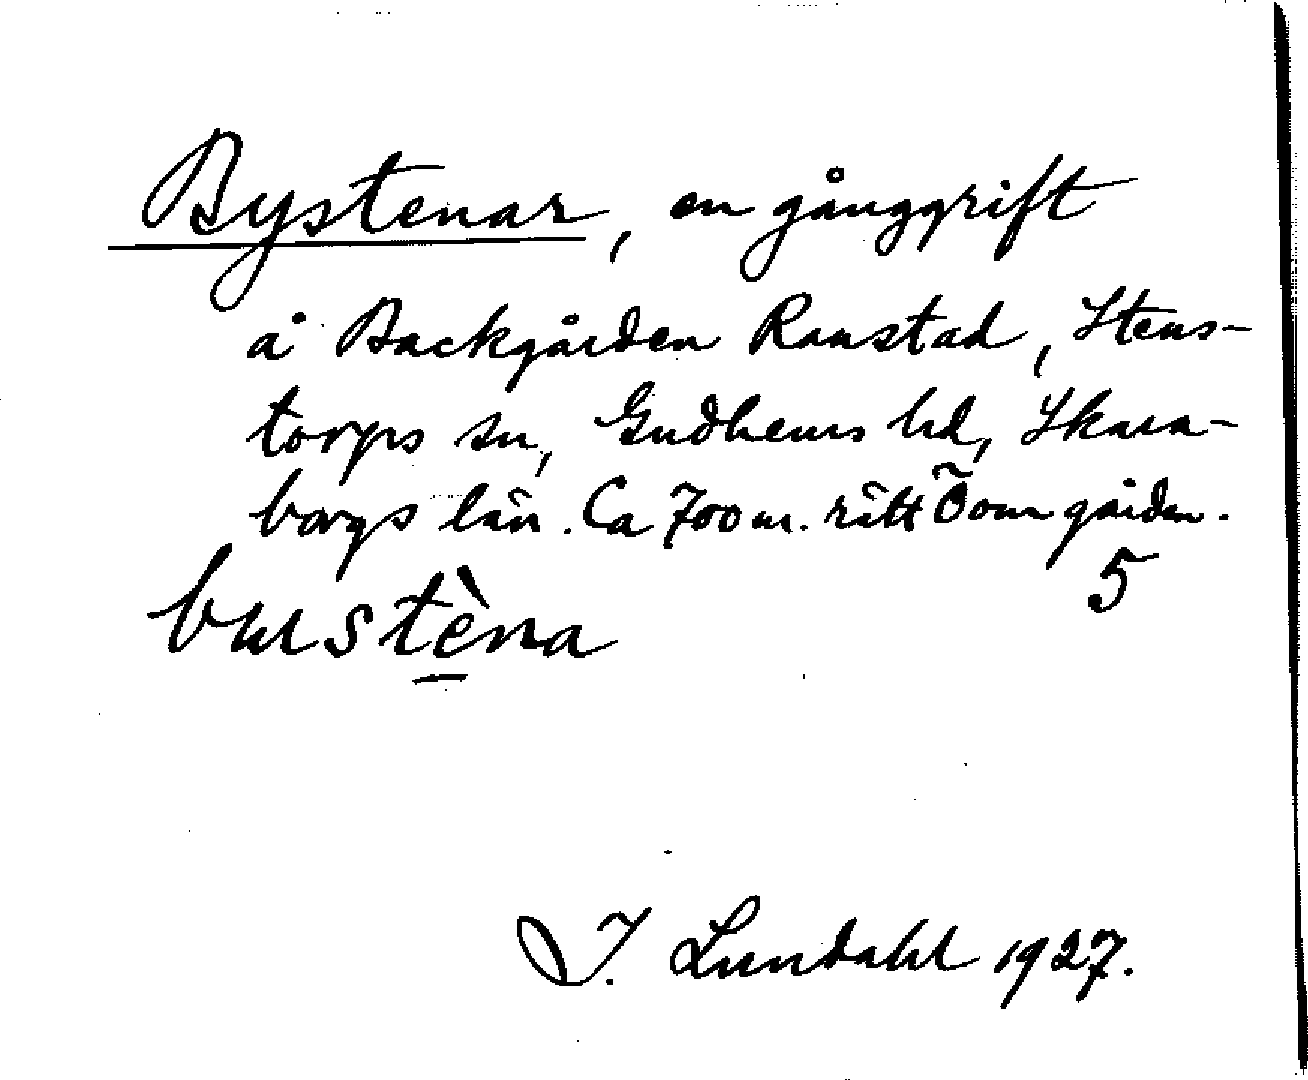 Bystenar, en gånggrift
å Backgården Ranstad, Stens-
torps sn, Gudhems hd, Skara-
borgs län. Ca 700 m. rätt Ö om gården.
5
bustèna
I. Lundahl 1927.